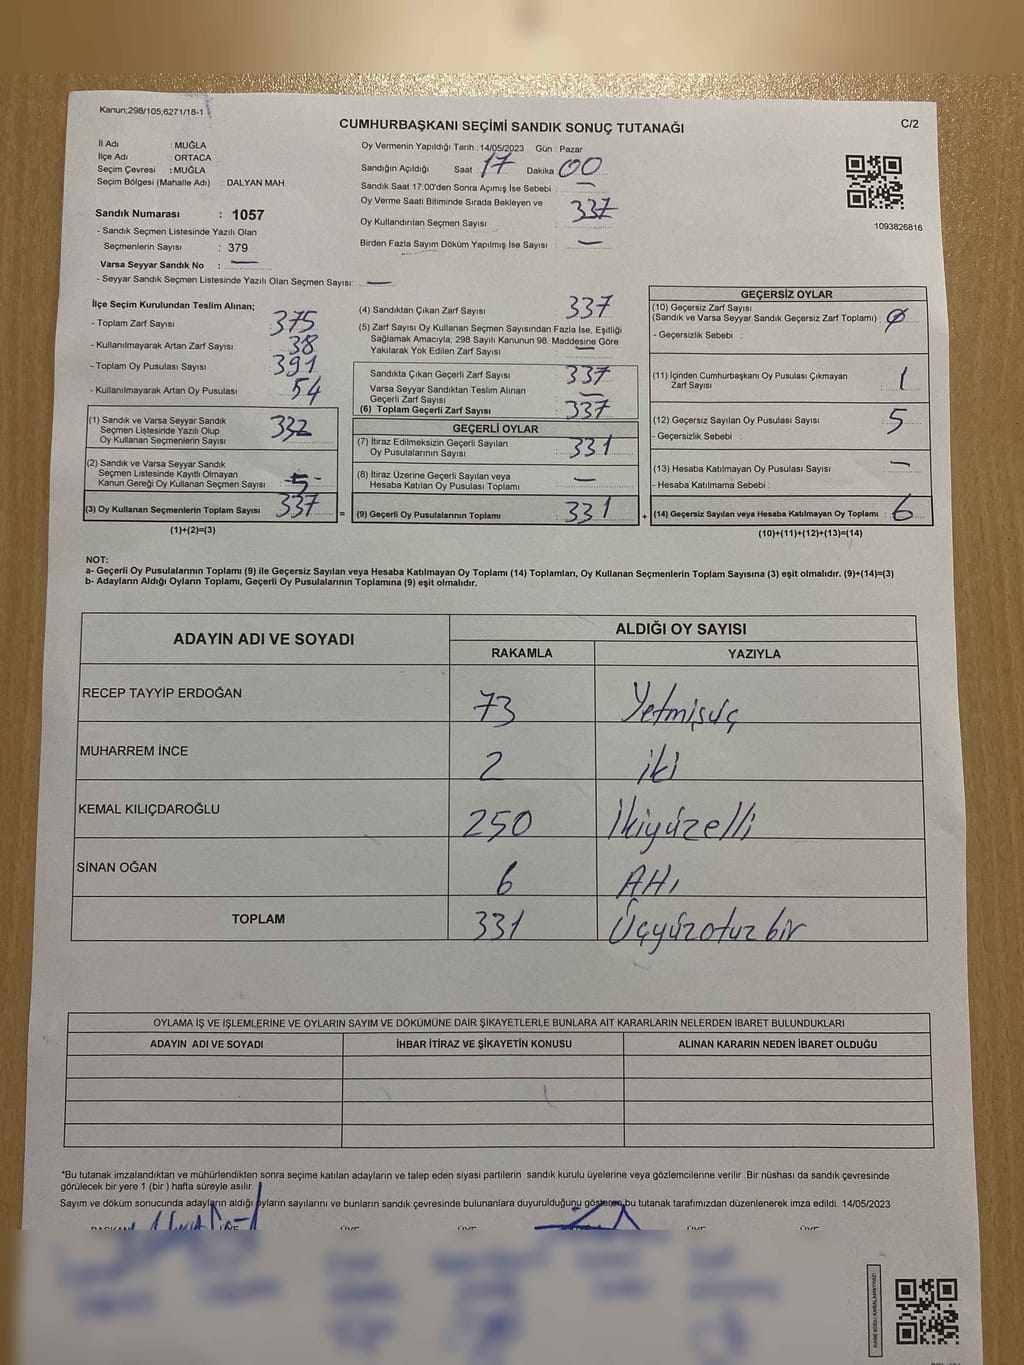 Kanun;298/105;6271/18-1
CUMHURBAŞKANI SEÇİMİ SANDIK SONUÇ TUTANAĞI
C/2
İl Adı : MUĞLA
İlçe Adı : ORTACA
Seçim Çevresi : MUĞLA
Seçim Bölgesi (Mahalle Adı) : DALYAN MAH.
Sandık Numarası : 1057
- Sandık Seçmen Listesinde Yazılı Olan
Seçmenlerin Sayısı : 379
Varsa Seyyar Sandık No : —
- Seyyar Sandık Seçmen Listesinde Yazılı Olan Seçmen Sayısı: —
Oy Vermenin Yapıldığı Tarih : 14/05/2023 Gün : Pazar
Sandığın Açıldığı Saat 17 Dakika 00
Sandık Saat 17:00'den Sonra Açımış İse Sebebi : —
Oy Verme Saati Bitiminde Sırada Bekleyen ve
Oy Kullandırılan Seçmen Sayısı : 337
Birden Fazla Sayım Döküm Yapılmış İse Sayısı : —
1093826816
İlçe Seçim Kurulundan Teslim Alınan;
- Toplam Zarf Sayısı : 375
- Kullanılmayarak Artan Zarf Sayısı : 38
- Toplam Oy Pusulası Sayısı : 391
- Kullanılmayarak Artan Oy Pusulası : 54
(1) Sandık ve Varsa Seyyar Sandık
Seçmen Listesinde Yazılı Olup
Oy Kullanan Seçmenlerin Sayısı : 332
(2) Sandık ve Varsa Seyyar Sandık
Seçmen Listesinde Kayıtlı Olmayan
Kanun Gereği Oy Kullanan Seçmen Sayısı : 5
(3) Oy Kullanan Seçmenlerin Toplam Sayısı : 337
(1)+(2)=(3)
(4) Sandıktan Çıkan Zarf Sayısı : 337
(5) Zarf Sayısı Oy Kullanan Seçmen Sayısından Fazla İse, Eşitliği
Sağlamak Amacıyla; 298 Sayılı Kanunun 98. Maddesine Göre
Yakılarak Yok Edilen Zarf Sayısı : —
Sandıkta Çıkan Geçerli Zarf Sayısı : 337
Varsa Seyyar Sandıktan Teslim Alınan
Geçerli Zarf Sayısı : —
(6) Toplam Geçerli Zarf Sayısı : 337
GEÇERLİ OYLAR
(7) İtiraz Edilmeksizin Geçerli Sayılan
Oy Pusulalarının Sayısı : 331
(8) İtiraz Üzerine Geçerli Sayılan veya
Hesaba Katılan Oy Pusulası Toplamı : —
= (9) Geçerli Oy Pusulalarının Toplamı : 331
GEÇERSİZ OYLAR
(10) Geçersiz Zarf Sayısı
(Sandık ve Varsa Seyyar Sandık Geçersiz Zarf Toplamı) : 0
- Geçersizlik Sebebi :
(11) İçinden Cumhurbaşkanı Oy Pusulası Çıkmayan
Zarf Sayısı : 1
(12) Geçersiz Sayılan Oy Pusulası Sayısı : 5
- Geçersizlik Sebebi :
(13) Hesaba Katılmayan Oy Pusulası Sayısı : —
- Hesaba Katılmama Sebebi :
+ (14) Geçersiz Sayılan veya Hesaba Katılmayan Oy Toplamı : 6
(10)+(11)+(12)+(13)=(14)
NOT:
a- Geçerli Oy Pusulalarının Toplamı (9) ile Geçersiz Sayılan veya Hesaba Katılmayan Oy Toplamı (14) Toplamları, Oy Kullanan Seçmenlerin Toplam Sayısına (3) eşit olmalıdır. (9)+(14)=(3)
b- Adayların Aldığı Oyların Toplamı, Geçerli Oy Pusulalarının Toplamına (9) eşit olmalıdır.
ADAYIN ADI VE SOYADI
ALDIĞI OY SAYISI
RAKAMLA YAZIYLA
RECEP TAYYİP ERDOĞAN 73 Yetmişüç
MUHARREM İNCE 2 iki
KEMAL KILIÇDAROĞLU 250 İkiyüzelli
SİNAN OĞAN 6 Altı
TOPLAM 331 Üçyüzotuzbir
OYLAMA İŞ VE İŞLEMLERİNE VE OYLARIN SAYIM VE DÖKÜMÜNE DAİR ŞİKAYETLERLE BUNLARA AİT KARARLARIN NELERDEN İBARET BULUNDUKLARI
ADAYIN ADI VE SOYADI İHBAR İTİRAZ VE ŞİKAYETİN KONUSU ALINAN KARARIN NEDEN İBARET OLDUĞU
*Bu tutanak imzalandıktan ve mühürlendikten sonra seçime katılan adayların ve talep eden siyasi partilerin sandık kurulu üyelerine veya gözlemcilerine verilir. Bir nüshası da sandık çevresinde
görülecek bir yere 1 (bir ) hafta süreyle asılır.
Sayım ve döküm sonucunda adayların aldığı oyların sayılarını ve bunların sandık çevresinde bulunanlara duyurulduğunu gösteren bu tutanak tarafımızdan düzenlenerek imza edildi. 14/05/2023
BAŞKAN ÜYE ÜYE ÜYE ÜYE ÜYE